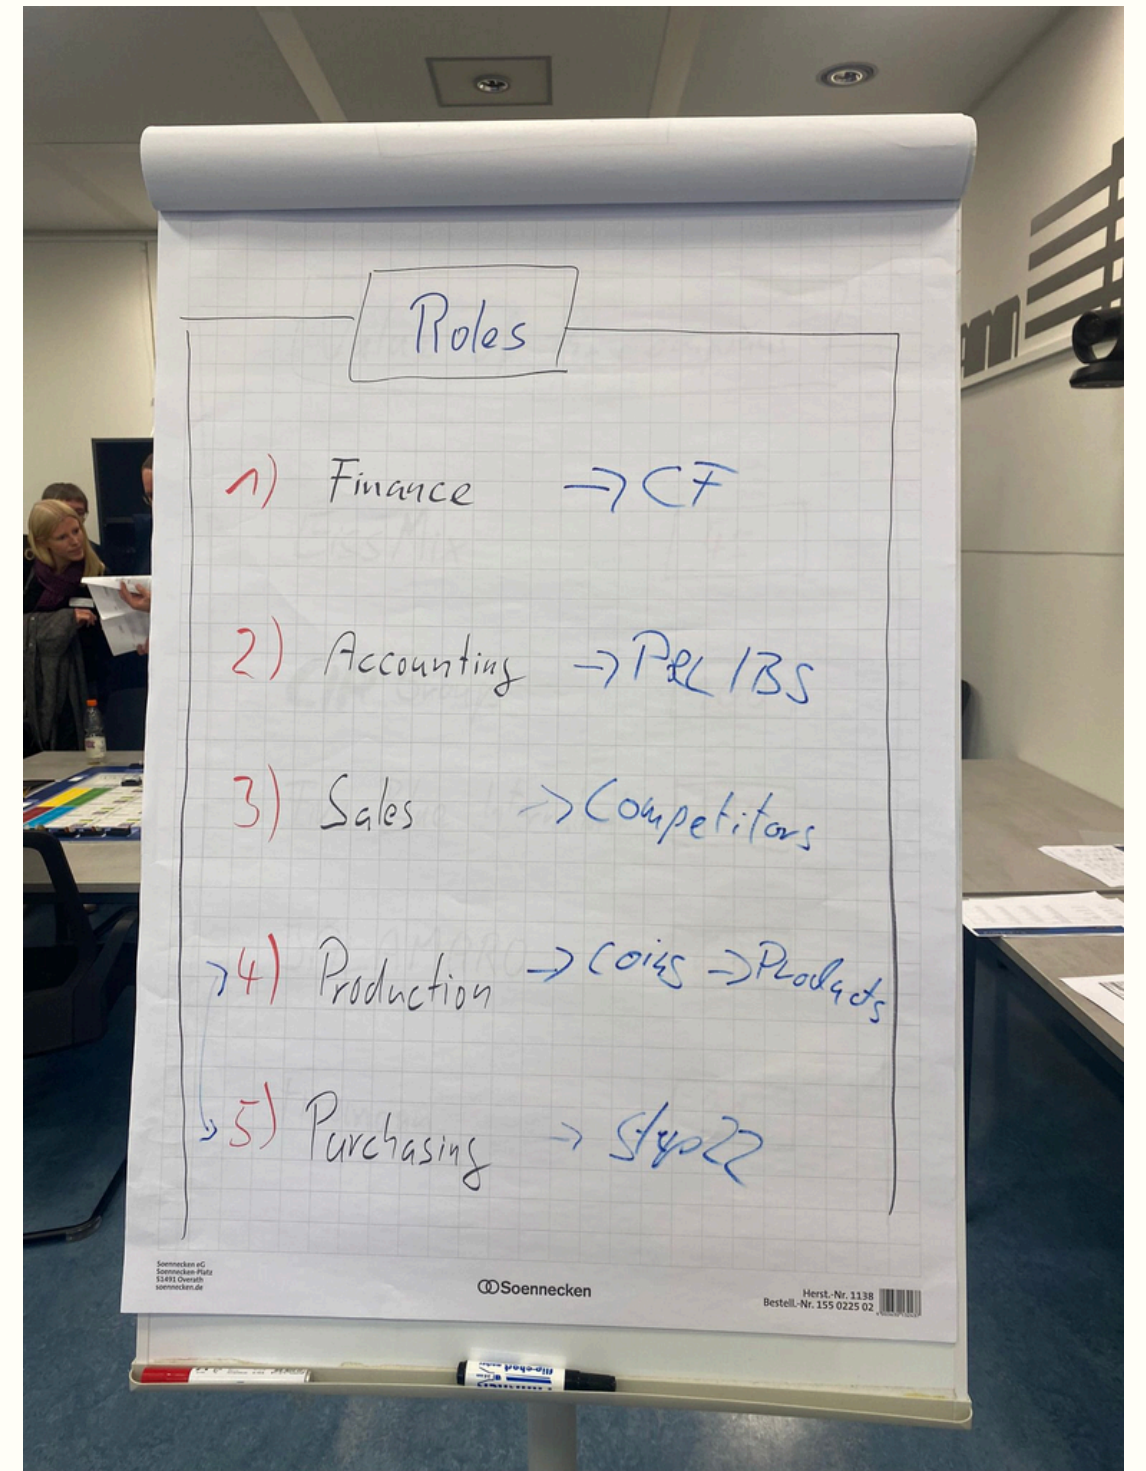 Roles
1) Finance → CF
2) Accounting → P&L / BS
3) Sales → Competitors
4) Production → Coins → Products
5) Purchasing → Step 22
Soennecken eG
Soennecken-Platz
51491 Overath
soennecken.de
Soennecken
Herst.-Nr. 1138
Bestell.-Nr. 155 0225 02